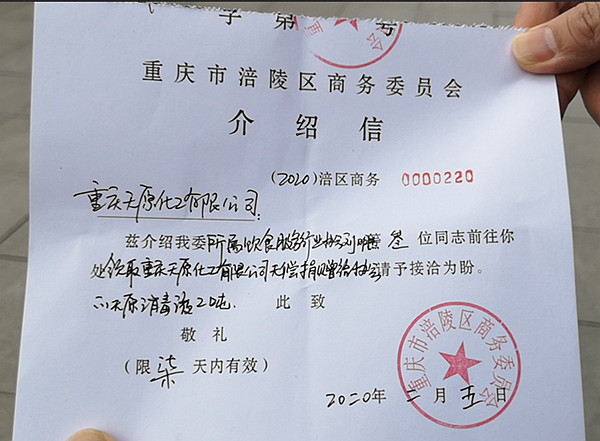 字第 号
重庆市涪陵区商务委员会
介绍信
(2020)涪区商务 0000220
重庆天原化工有限公司:
兹介绍我委所属饮食服务行业协会刘 等 叁 位同志前往你
处领取重庆天原化工有限公司无偿捐赠给协会 请予接洽为盼。
的天原消毒液20吨. 此致
敬礼
(限 柒 天内有效)
2020年 二 月 五 日
重庆市涪陵区商务委员会